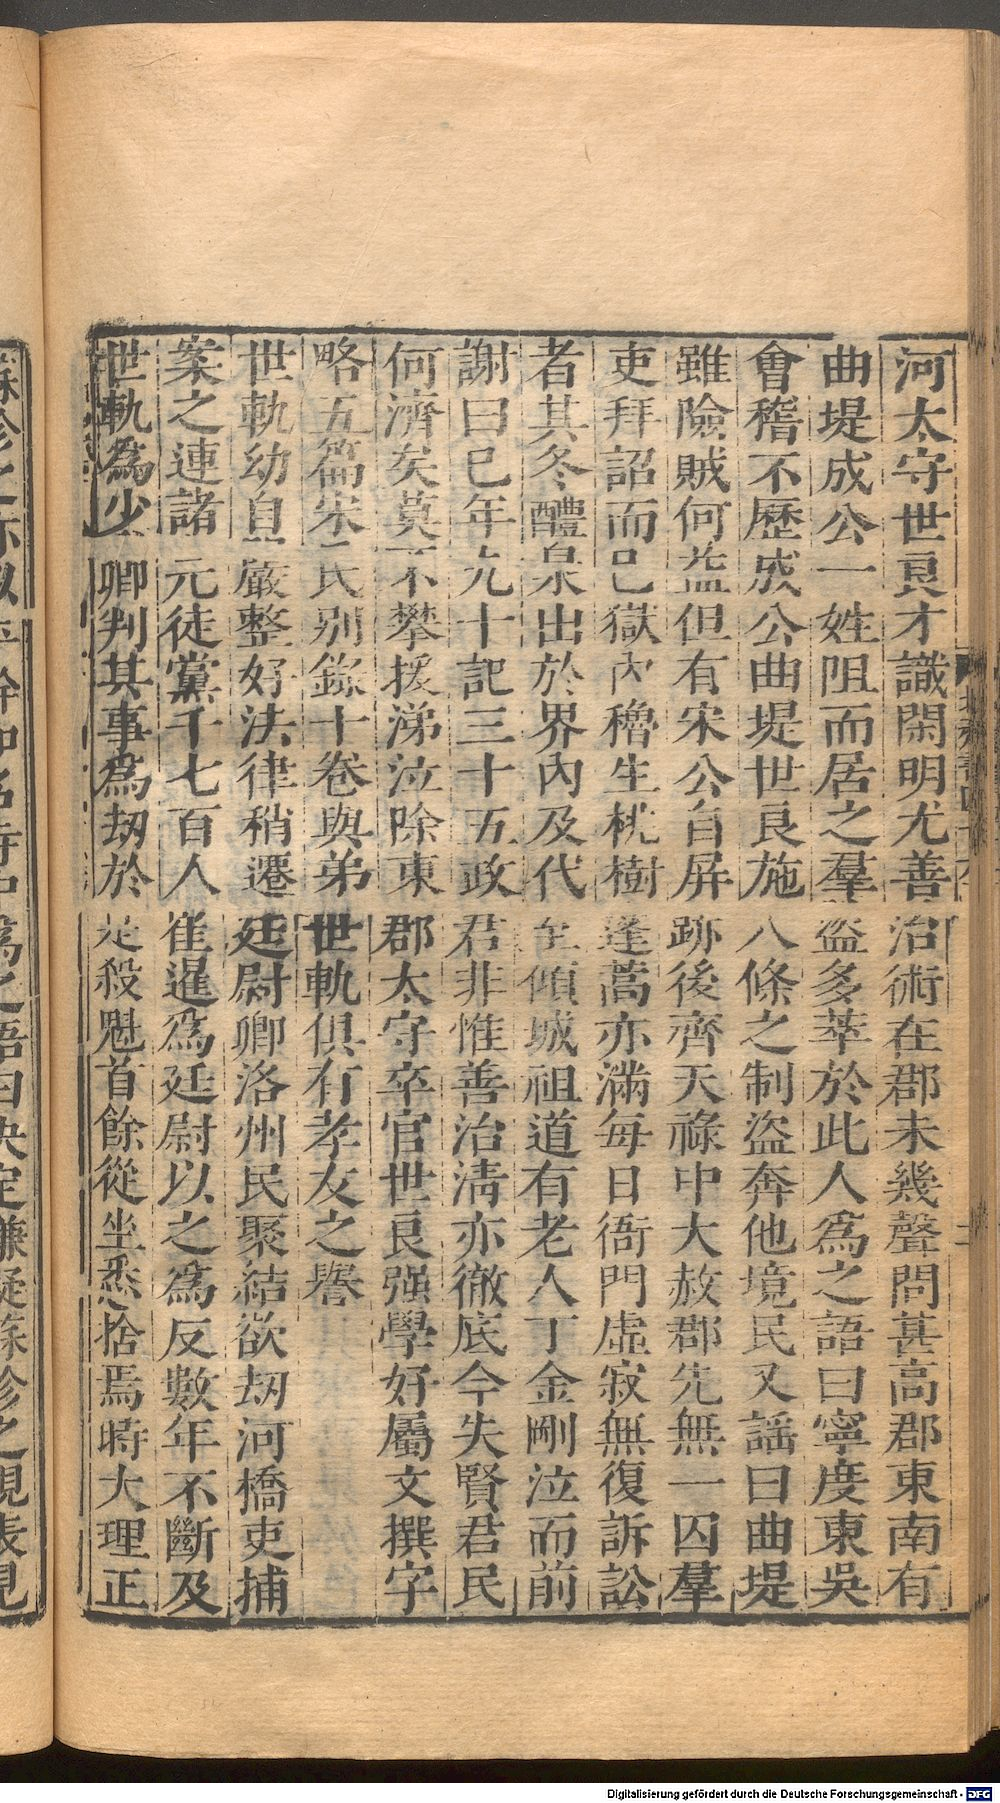 河太守世良才識閑明尤善治術在郡未幾聲問甚高郡東南有
曲堤成公一姓阻而居之羣盜多萃於此人爲之語曰寧度東吳
會稽不歷成公曲堤世良施八條之制盜奔他境民又謡曰曲堤
雖險賊何益但有宋公自屏跡後齊天祿中大赦郡先無一囚羣
吏拜詔而已獄內穭生桃樹蓬蒿亦滿每日衙門虛寂無復訴訟
者其冬醴泉出於界內及代至傾城祖道有老人丁金剛泣而前
謝曰已年九十記三十五政君非惟善治淸亦徹底今失賢君民
何濟矣莫不攀援涕泣除東郡太守卒官世良强學好屬文撰字
略五篇宋氏别錄十卷與弟世軌俱有孝友之譽
世軌幼自嚴整好法律稍遷廷尉卿洛州民聚結欲刼河橋吏捕
案之連諸元徒黨千七百人崔暹爲廷尉以之爲反數年不斷及
世軌爲少卿判其事爲刼於是殺魁首餘從坐悉捨焉時大理正
Digitalisierung gefördert durch die Deutsche Forschungsgemeinschaft - DFG